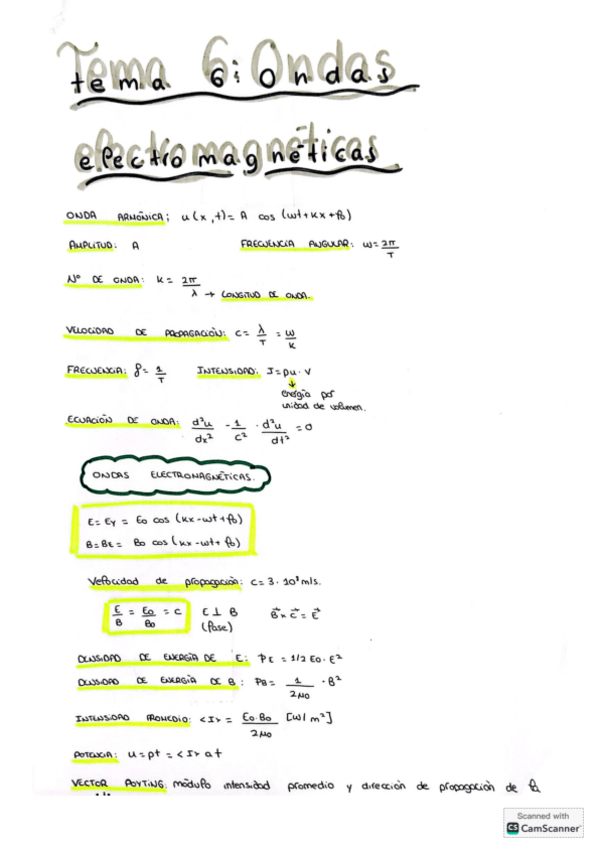 Tema 6: Ondas
electromagnéticas
ONDA ARMÓNICA: u(x,t) = A cos (wt + kx + φ0)
AMPLITUD: A FRECUENCIA ANGULAR: ω = 2π/T
Nº DE ONDA: K = 2π/λ → LONGITUD DE ONDA.
VELOCIDAD DE PROPAGACIÓN: c = λ/T = ω/K
FRECUENCIA: f = 1/T INTENSIDAD: I = ρu · v
↓
energía por
unidad de volumen.
ECUACIÓN DE ONDA: d²u/dx² - 1/c² · d²u/dt² = 0
ONDAS ELECTROMAGNÉTICAS.
E = Ey = E0 cos (kx - wt + φ0)
B = Bz = B0 cos (kx - wt + φ0)
Velocidad de propagación: c = 3 · 10⁸ m/s.
E/B = E0/B0 = c E ⊥ B B⃗ × c⃗ = E⃗
(fase)
DENSIDAD DE ENERGÍA DE E: ρE = 1/2 ε0 · E²
DENSIDAD DE ENERGÍA DE B: ρB = 1/2μ0 · B²
INTENSIDAD PROMEDIO: <I> = E0·B0/2μ0 [W/m²]
POTENCIA: u = pt = <I> a t
VECTOR POYTING: módulo intensidad promedio y dirección de propagación de la
Scanned with
CS CamScanner